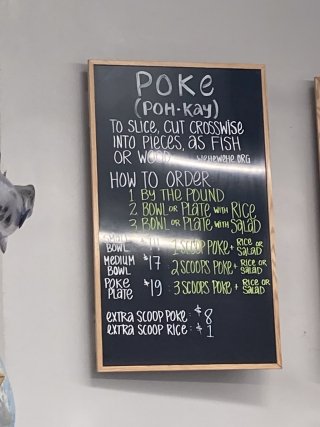 POKE
(POH-KAY)
TO SLICE, CUT CROSSWISE
INTO PIECES, AS FISH
OR WOOD wehewehe.org
HOW TO ORDER
1 BY THE POUND
2. BOWL OR PLATE WITH RICE
3. BOWL OR PLATE WITH SALAD
BOWL 1 SCOOP POKE + RICE OR SALAD
MEDIUM BOWL $17 2 SCOOPS POKE + RICE OR SALAD
POKE PLATE $19 3 SCOOPS POKE + RICE OR SALAD
EXTRA SCOOP POKE: $8
EXTRA SCOOP RICE: $1